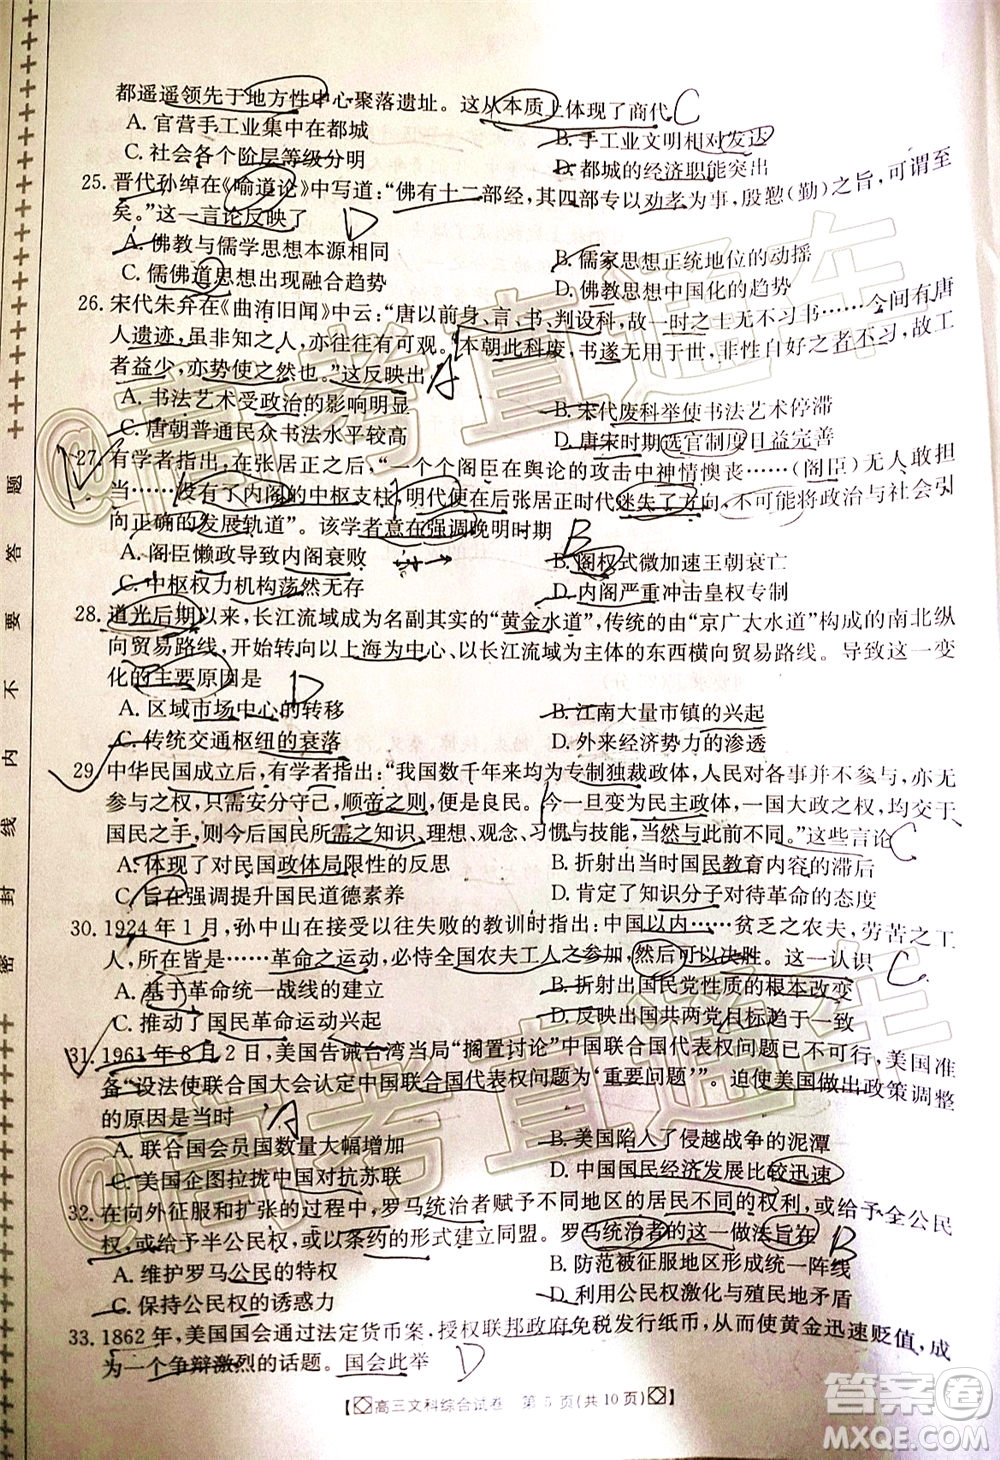 都遥遥领先于地方性中心聚落遗址。这从本质上体现了商代 C
A. 官营手工业集中在都城 B. 手工业文明相对发达
C. 社会各个阶层等级分明 D. 都城的经济职能突出
25. 晋代孙绰在《喻道论》中写道：“佛有十二部经，其四部专以劝孝为事，殷懃(勤)之旨，可谓至
矣。”这一言论反映了 D
A. 佛教与儒学思想本源相同 B. 儒家思想正统地位的动摇
C. 儒佛道思想出现融合趋势 D. 佛教思想中国化的趋势
26. 宋代朱弁在《曲洧旧闻》中云：“唐以前身、言、书、判设科，故一时之士无不习书……今间有唐
人遗迹，虽非知名之人，亦往往有可观。本朝此科废，书遂无用于世，非性自好之者不习，故工
者益少，亦势使之然也。”这反映出 A
A. 书法艺术受政治的影响明显 B. 宋代废科举使书法艺术停滞
C. 唐朝普通民众书法水平较高 D. 唐宋时期选官制度日益完善
27. 有学者指出，在张居正之后，“一个个阁臣在舆论的攻击中神情懊丧……(阁臣)无人敢担
当……没有了内阁的中枢支柱，明代使在后张居正时代迷失了方向，不可能将政治与社会引
向正确的发展轨道”。该学者意在强调晚明时期 B
A. 阁臣懒政导致内阁衰败 B. 阁权式微加速王朝衰亡
C. 中枢权力机构荡然无存 D. 内阁严重冲击皇权专制
28. 道光后期以来，长江流域成为名副其实的“黄金水道”，传统的由“京广大水道”构成的南北纵
向贸易路线，开始转向以上海为中心、以长江流域为主体的东西横向贸易路线。导致这一变
化的主要原因是 D
A. 区域市场中心的转移 B. 江南大量市镇的兴起
C. 传统交通枢纽的衰落 D. 外来经济势力的渗透
29. 中华民国成立后，有学者指出：“我国数千年来均为专制独裁政体，人民对各事并不干涉，亦无
参与之权，只需安分守己，顺帝之则，便是良民。今一旦变为民主政体，一国大政之权，均交于
国民之手，则今后国民所需之知识、理想、观念、习惯与技能，当然与前不同。”这些言论 C
A. 体现了对民国政体局限性的反思 B. 折射出当时国民教育内容的滞后
C. 旨在强调提升国民道德素养 D. 肯定了知识分子对待革命的态度
30. 1924 年 1 月，孙中山在接受以往失败的教训时指出：中国以内……贫乏之农夫，劳苦之工
人，所在皆是……革命之运动，必恃全国农夫工人之参加，然后可以决胜。这一认识 C
A. 基于革命统一战线的建立 B. 折射出国民党性质的根本改变
C. 推动了国民革命运动的兴起 D. 反映出国共两党目标趋于一致
31. 1961 年 8 月 2 日，美国告诫台湾当局“搁置讨论”中国联合国代表权问题已不可行，美国准
备“设法使联合国大会认定中国联合国代表权问题为‘重要问题’”。迫使美国做出政策调整
的原因是当时 A
A. 联合国会员国数量大幅增加 B. 美国陷入了侵越战争的泥潭
C. 美国企图拉拢中国对抗苏联 D. 中国国民经济发展比较迅速
32. 在向外征服和扩张的过程中，罗马统治者赋予不同地区的居民不同的权利，或给予全公民
权，或给予半公民权，或以条约的形式建立同盟。罗马统治者的这一做法旨在 B
A. 维护罗马公民的特权 B. 防范被征服地区形成统一阵线
C. 保持公民权的诱惑力 D. 利用公民权激化与殖民地矛盾
33. 1862 年，美国国会通过法定货币案，授权联邦政府免税发行纸币，从而使黄金迅速贬值，成
为一个争辩激烈的话题。国会此举 D
【高三文科综合试卷 第 5 页(共 10 页)】
密 封 线 内 不 要 答 题
@高考直通车
答案圈
MXQE.COM